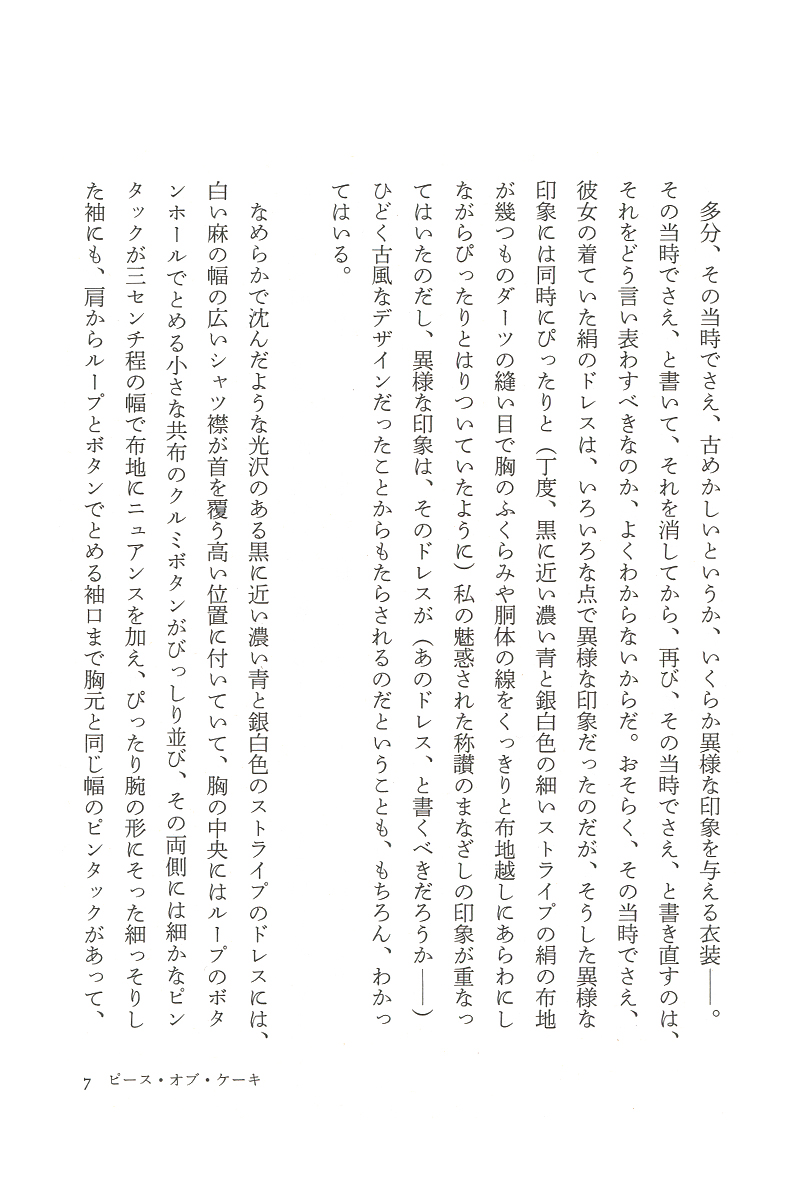 多分、その当時でさえ、古めかしいというか、いくらか異様な印象を与える衣装――。
その当時でさえ、と書いて、それを消してから、再び、その当時でさえ、と書き直すのは、
それをどう言い表わすべきなのか、よくわからないからだ。おそらく、その当時でさえ、
彼女の着ていた絹のドレスは、いろいろな点で異様な印象だったのだが、そうした異様な
印象には同時にぴったりと（丁度、黒に近い濃い青と銀白色の細いストライプの絹の布地
が幾つものダーツの縫い目で胸のふくらみや胴体の線をくっきりと布地越しにあらわにし
ながらぴったりとはりついていたように）私の魅惑された称讃のまなざしの印象が重なっ
てはいたのだし、異様な印象は、そのドレスが（あのドレス、と書くべきだろうか――）
ひどく古風なデザインだったことからもたらされるのだということも、もちろん、わかっ
てはいる。
なめらかで沈んだような光沢のある黒に近い濃い青と銀白色のストライプのドレスには、
白い麻の幅の広いシャツ襟が首を覆う高い位置に付いていて、胸の中央にはループのボタ
ンホールでとめる小さな共布のクルミボタンがびっしり並び、その両側には細かなピン
タックが三センチ程の幅で布地にニュアンスを加え、ぴったり腕の形にそった細っそりし
た袖にも、肩からループとボタンでとめる袖口まで胸元と同じ幅のピンタックがあって、
7 ピース・オブ・ケーキ